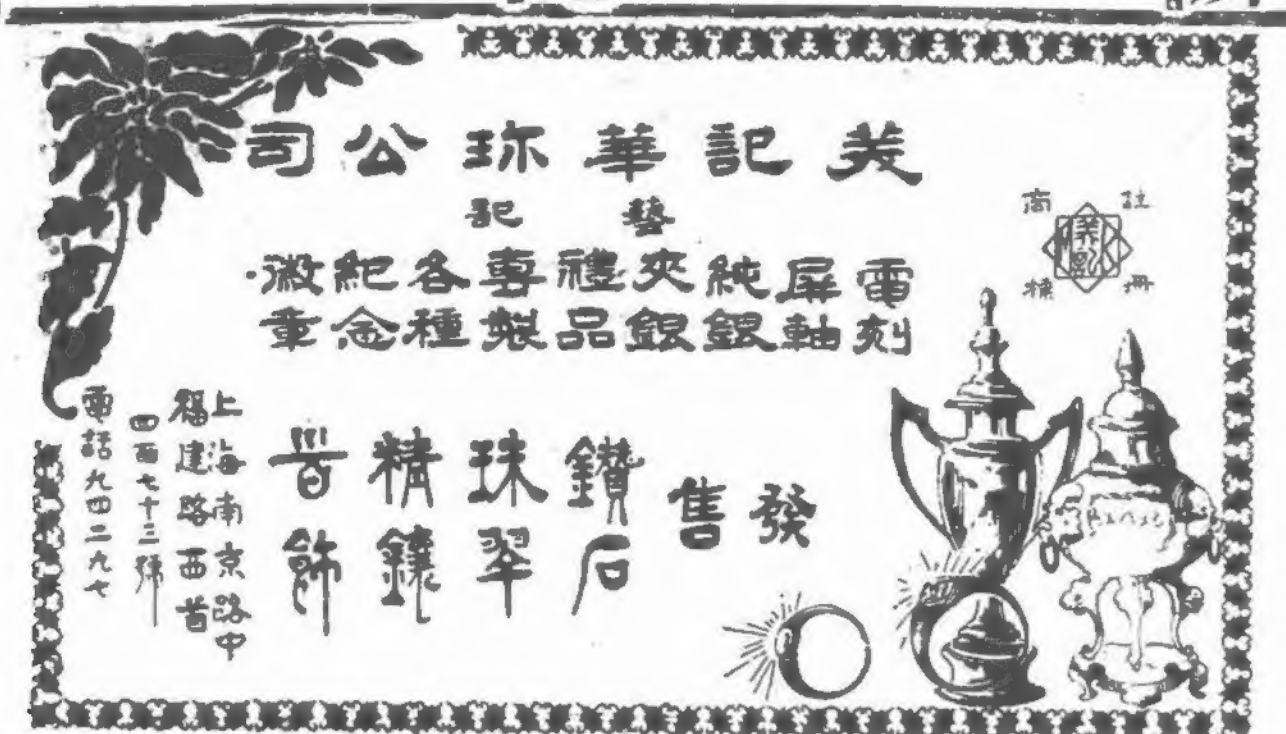 美記華珎公司
藝記
註冊商標
美記
電刻
屏軸
純銀
夾銀
禮品
專製
各種
紀念
徽章
發售
鑽石
珠翠
精鑲
首飾
上海南京路中
福建路西首
四百七十三號
電話九四二九七